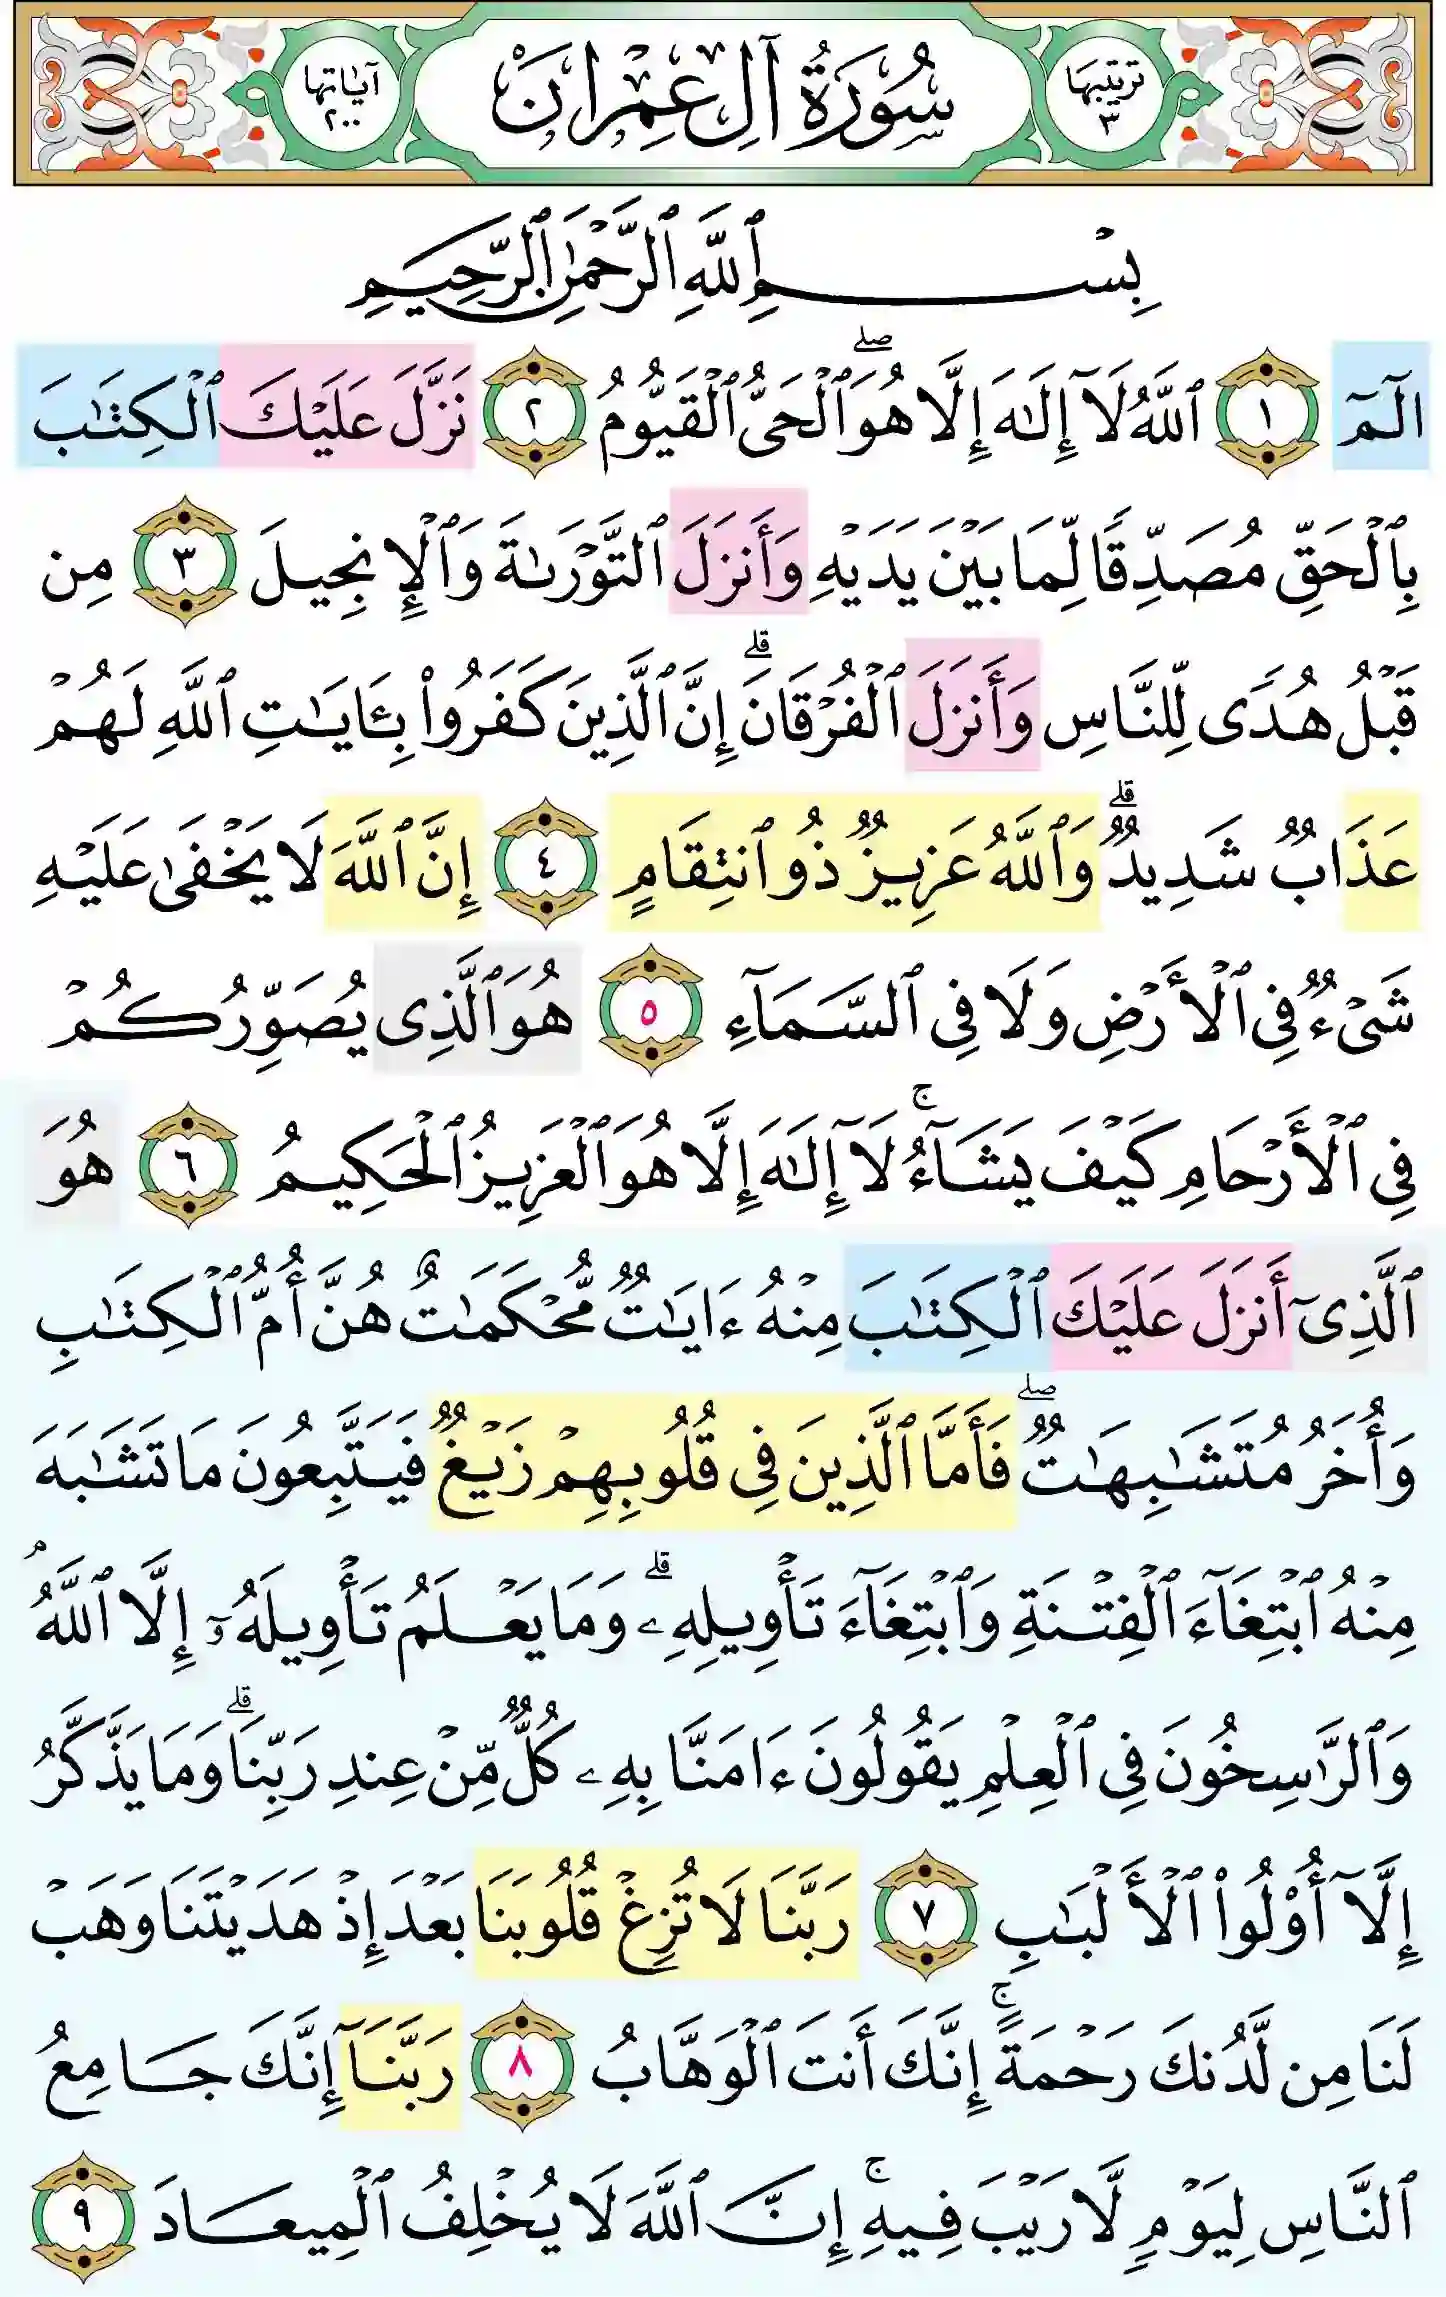 ترتيبها ٣
سُورَةُ آلِ عِمْرَانَ
آياتها ٢٠٠
بِسْمِ ٱللَّهِ ٱلرَّحْمَٰنِ ٱلرَّحِيمِ
الٓمٓ ١ ٱللَّهُ لَآ إِلَٰهَ إِلَّا هُوَ ۖ ٱلْحَىُّ ٱلْقَيُّومُ ٢ نَزَّلَ عَلَيْكَ ٱلْكِتَٰبَ
بِٱلْحَقِّ مُصَدِّقًا لِّمَا بَيْنَ يَدَيْهِ وَأَنزَلَ ٱلتَّوْرَىٰةَ وَٱلْإِنجِيلَ ٣ مِن
قَبْلُ هُدًى لِّلنَّاسِ وَأَنزَلَ ٱلْفُرْقَانَ ۗ إِنَّ ٱلَّذِينَ كَفَرُوا۟ بِـَٔايَٰتِ ٱللَّهِ لَهُمْ
عَذَابٌ شَدِيدٌ ۗ وَٱللَّهُ عَزِيزٌ ذُو ٱنتِقَامٍ ٤ إِنَّ ٱللَّهَ لَا يَخْفَىٰ عَلَيْهِ
شَىْءٌ فِى ٱلْأَرْضِ وَلَا فِى ٱلسَّمَآءِ ٥ هُوَ ٱلَّذِى يُصَوِّرُكُمْ
فِى ٱلْأَرْحَامِ كَيْفَ يَشَآءُ ۚ لَآ إِلَٰهَ إِلَّا هُوَ ٱلْعَزِيزُ ٱلْحَكِيمُ ٦ هُوَ
ٱلَّذِىٓ أَنزَلَ عَلَيْكَ ٱلْكِتَٰبَ مِنْهُ ءَايَٰتٌ مُّحْكَمَٰتٌ هُنَّ أُمُّ ٱلْكِتَٰبِ
وَأُخَرُ مُتَشَٰبِهَٰتٌ ۖ فَأَمَّا ٱلَّذِينَ فِى قُلُوبِهِمْ زَيْغٌ فَيَتَّبِعُونَ مَا تَشَٰبَهَ
مِنْهُ ٱبْتِغَآءَ ٱلْفِتْنَةِ وَٱبْتِغَآءَ تَأْوِيلِهِۦ ۗ وَمَا يَعْلَمُ تَأْوِيلَهُۥٓ إِلَّا ٱللَّهُ ۘ
وَٱلرَّٰسِخُونَ فِى ٱلْعِلْمِ يَقُولُونَ ءَامَنَّا بِهِۦ كُلٌّ مِّنْ عِندِ رَبِّنَا ۗ وَمَا يَذَّكَّرُ
إِلَّآ أُو۟لُوا۟ ٱلْأَلْبَٰبِ ٧ رَبَّنَا لَا تُزِغْ قُلُوبَنَا بَعْدَ إِذْ هَدَيْتَنَا وَهَبْ
لَنَا مِن لَّدُنكَ رَحْمَةً ۚ إِنَّكَ أَنتَ ٱلْوَهَّابُ ٨ رَبَّنَآ إِنَّكَ جَامِعُ
ٱلنَّاسِ لِيَوْمٍ لَّا رَيْبَ فِيهِ ۚ إِنَّ ٱللَّهَ لَا يُخْلِفُ ٱلْمِيعَادَ ٩